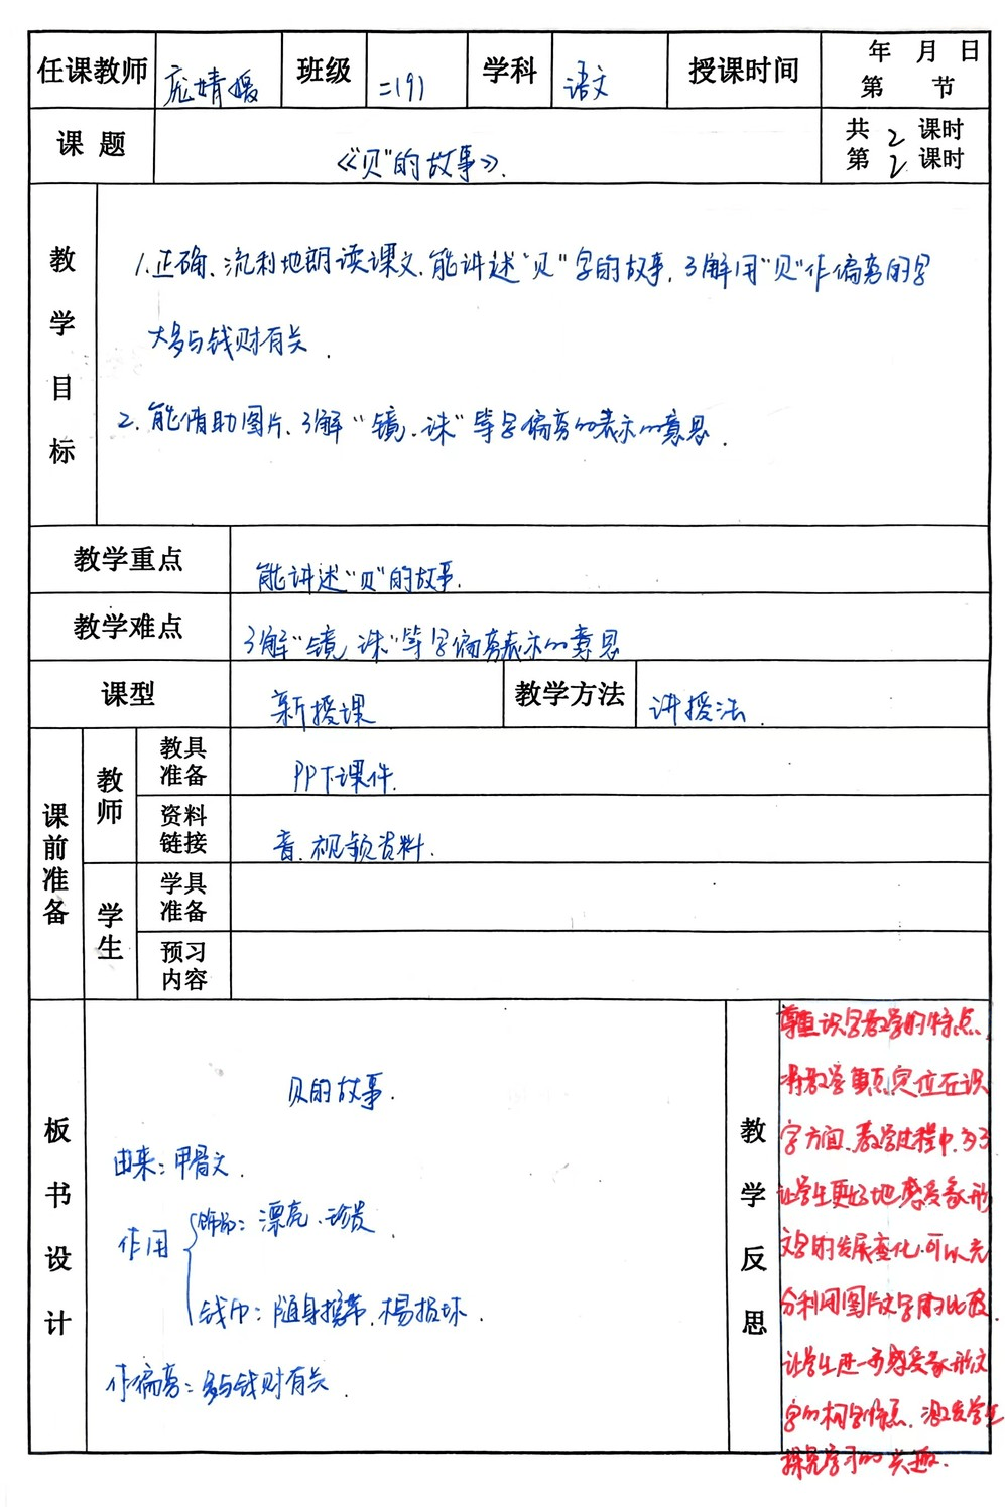 任课教师 庞婧媛 班级 二(9) 学科 语文 授课时间 年 月 日
第 节
课 题 《“贝”的故事》. 共 2 课时
第 2 课时
教学目标
1.正确、流利地朗读课文,能讲述“贝”字的故事,了解用“贝”作偏旁的字
大多与钱财有关.
2.能借助图片,了解“镜、珠”等字偏旁的表示的意思.
教学重点 能讲述“贝”的故事.
教学难点 了解“镜、珠”等字偏旁表示的意思
课型 新授课 教学方法 讲授法.
课前准备
教师
教具准备 PPT课件.
资料链接 音、视频资料.
学生
学具准备
预习内容
板书设计
贝的故事.
由来:甲骨文.
作用
饰品:漂亮、珍贵
钱币:随身携带、不易损坏.
作偏旁:多与钱财有关.
教学反思
尊重识字教学的特点,
将教学重点定位在识
字方面.教学过程中,为了
让学生更好地感受象形
文字的发展变化,可以充
分利用图片文字的比较,
让学生进一步感受象形文
字的构字特点,激发学生
探究学习的兴趣.